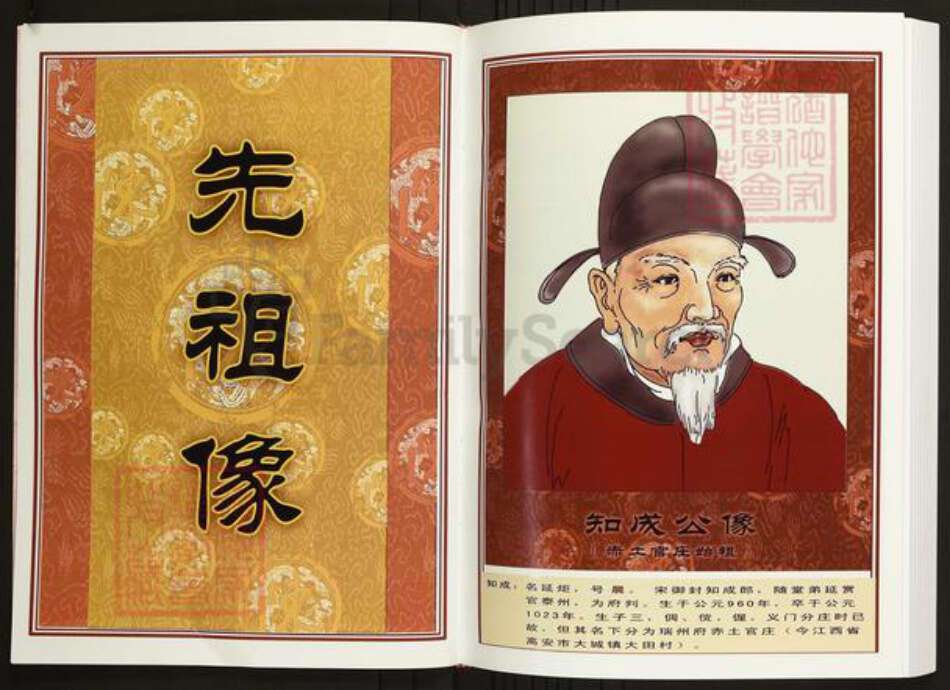 先祖像
知成公像
赤土官庄始祖
知成：名延炬，号晨。宋御封知成郎，随堂弟延赏
官泰州，为府判，生于公元960年，卒于公元
1023年。生子三，偶、傥，偓，义门分庄时已
故，但其名下分为瑞州府赤土官庄（今江西省
高安市大城镇大田村）。
FamilyS